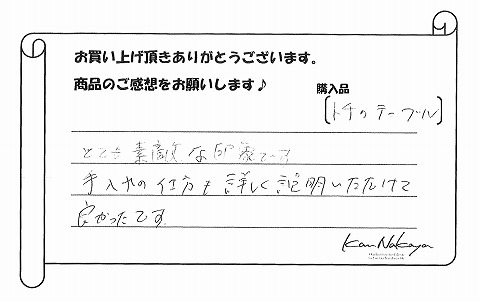 お買い上げ頂きありがとうございます。
商品のご感想をお願いします♪
購入品
[トチのテーブル]
とても素敵な印象です
手入れの仕方も詳しく説明いただけて
良かったです
Kan Nakaya